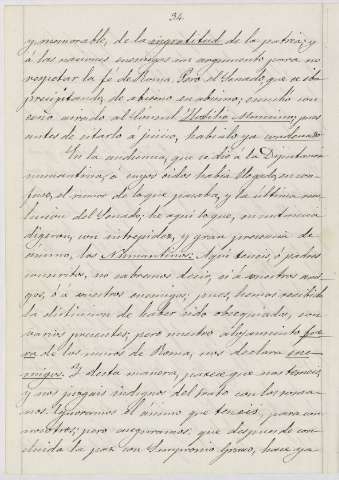 34.
y memorable, de la ingratitud de la patria; y
á las naciones enemigas un argumento para no
respetar la fé de Roma. Pero el Senado, que se iba
precipitando, de abismo en abismo, escuchó con
ceño airado al Cónsul Hostilio Mancino; pues
antes de citarlo á juicio, habíalo ya condenado.
En la audiencia, que se dió á la Diputación
numantina, á cuyos oidos había llegado, en con-
fuso, el rumor de lo que pasaba, y la última reso-
lucion del Senado, he aquí lo que, en sustancia
digeron, con intrepidez, y gran presencia de
ánimo, los Numantinos: Aquí teneis, ó padres
conscritos, no sabremos decir, si á vuestros ami-
gos, ó á vuestros enemigos; pues, hemos recibido
la distincion de haber sido obsequiados, con
varios presentes; pero nuestro alojamiento fue-
ra de los muros de Roma, nos declara ene-
migos. Y desta manera, parece que nos temeis,
y nos juzgais indignos del trato con los roma-
nos. Ignoramos el ánimo que teneis, para con
nosotros; pero aseguramos: que despues de con-
cluida la paz con Sempronio Graco, hace ya